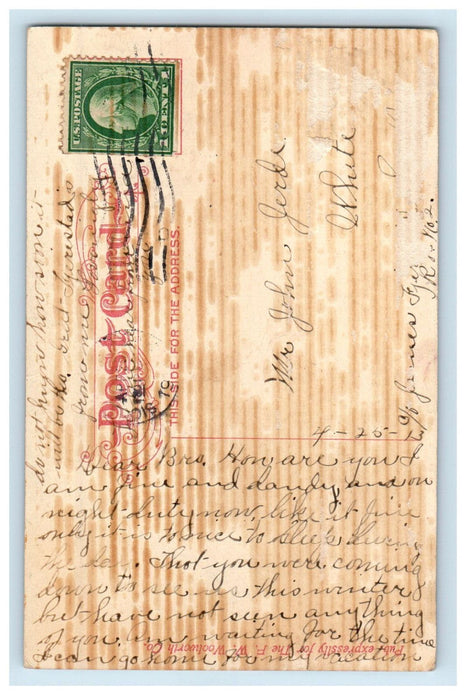 U.S. POSTAGE
1 CENT 1
Post Card
THIS SIDE FOR THE ADDRESS.
Mr John Jerde
White
c/o James
R.R. No. 2.
4-25-
Dear Bro. How are you I
am fine and dandy and on
night duty now, like it fine
only it is to nice to sleep during
the day. Thot you were coming
down to see us this winter
but have not seen any thing
of you. im waiting for the time
I can go home for my vacation
do not know how soon it
will be
from
Pub. expressly for The F. W. Woolworth Co.